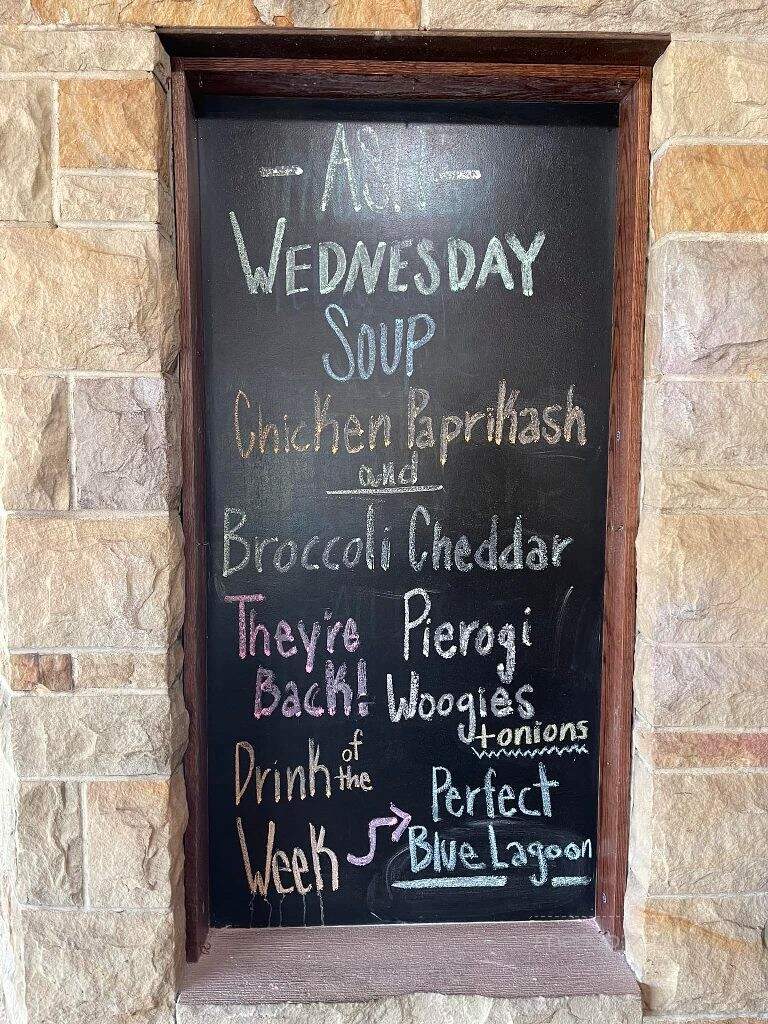 - ASH -
WEDNESDAY
SOUP
Chicken Paprikash
and
Broccoli Cheddar
They're Back!
Pierogi Woogies
+onions
Drink of the Week
Perfect Blue Lagoon